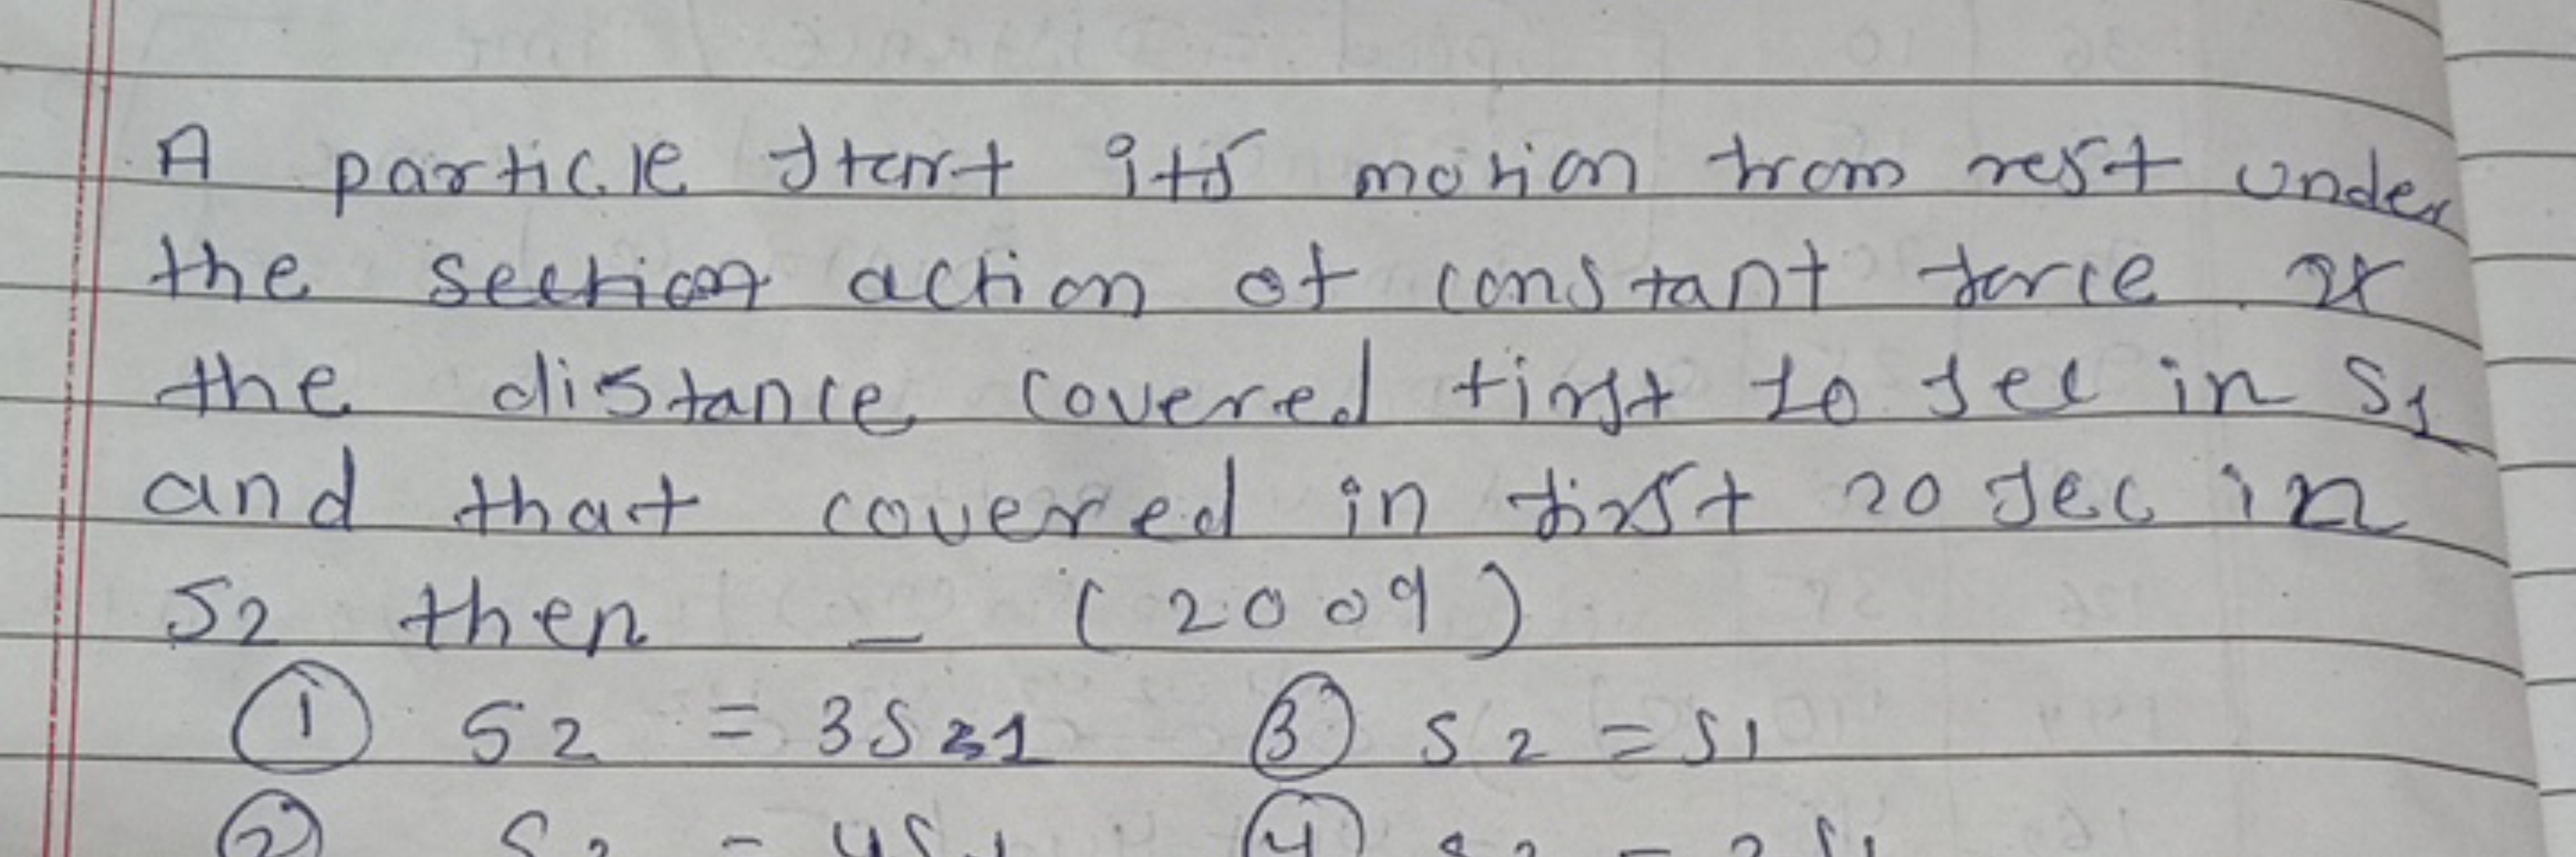 A particle start its motion from rest under
the section action of constant force. If
the distance covered first 10 sec in S1
and that covered in first 20 sec in
S2 then _ (2009)
① S2 = 3S1 ③ S2 = S1
② S2 = 4S1 ④ S2 = 2S1